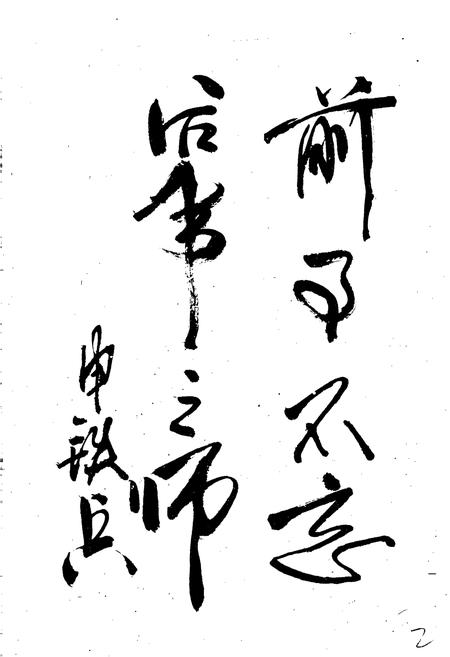 前事不忘
后事之师
申铁兵
2